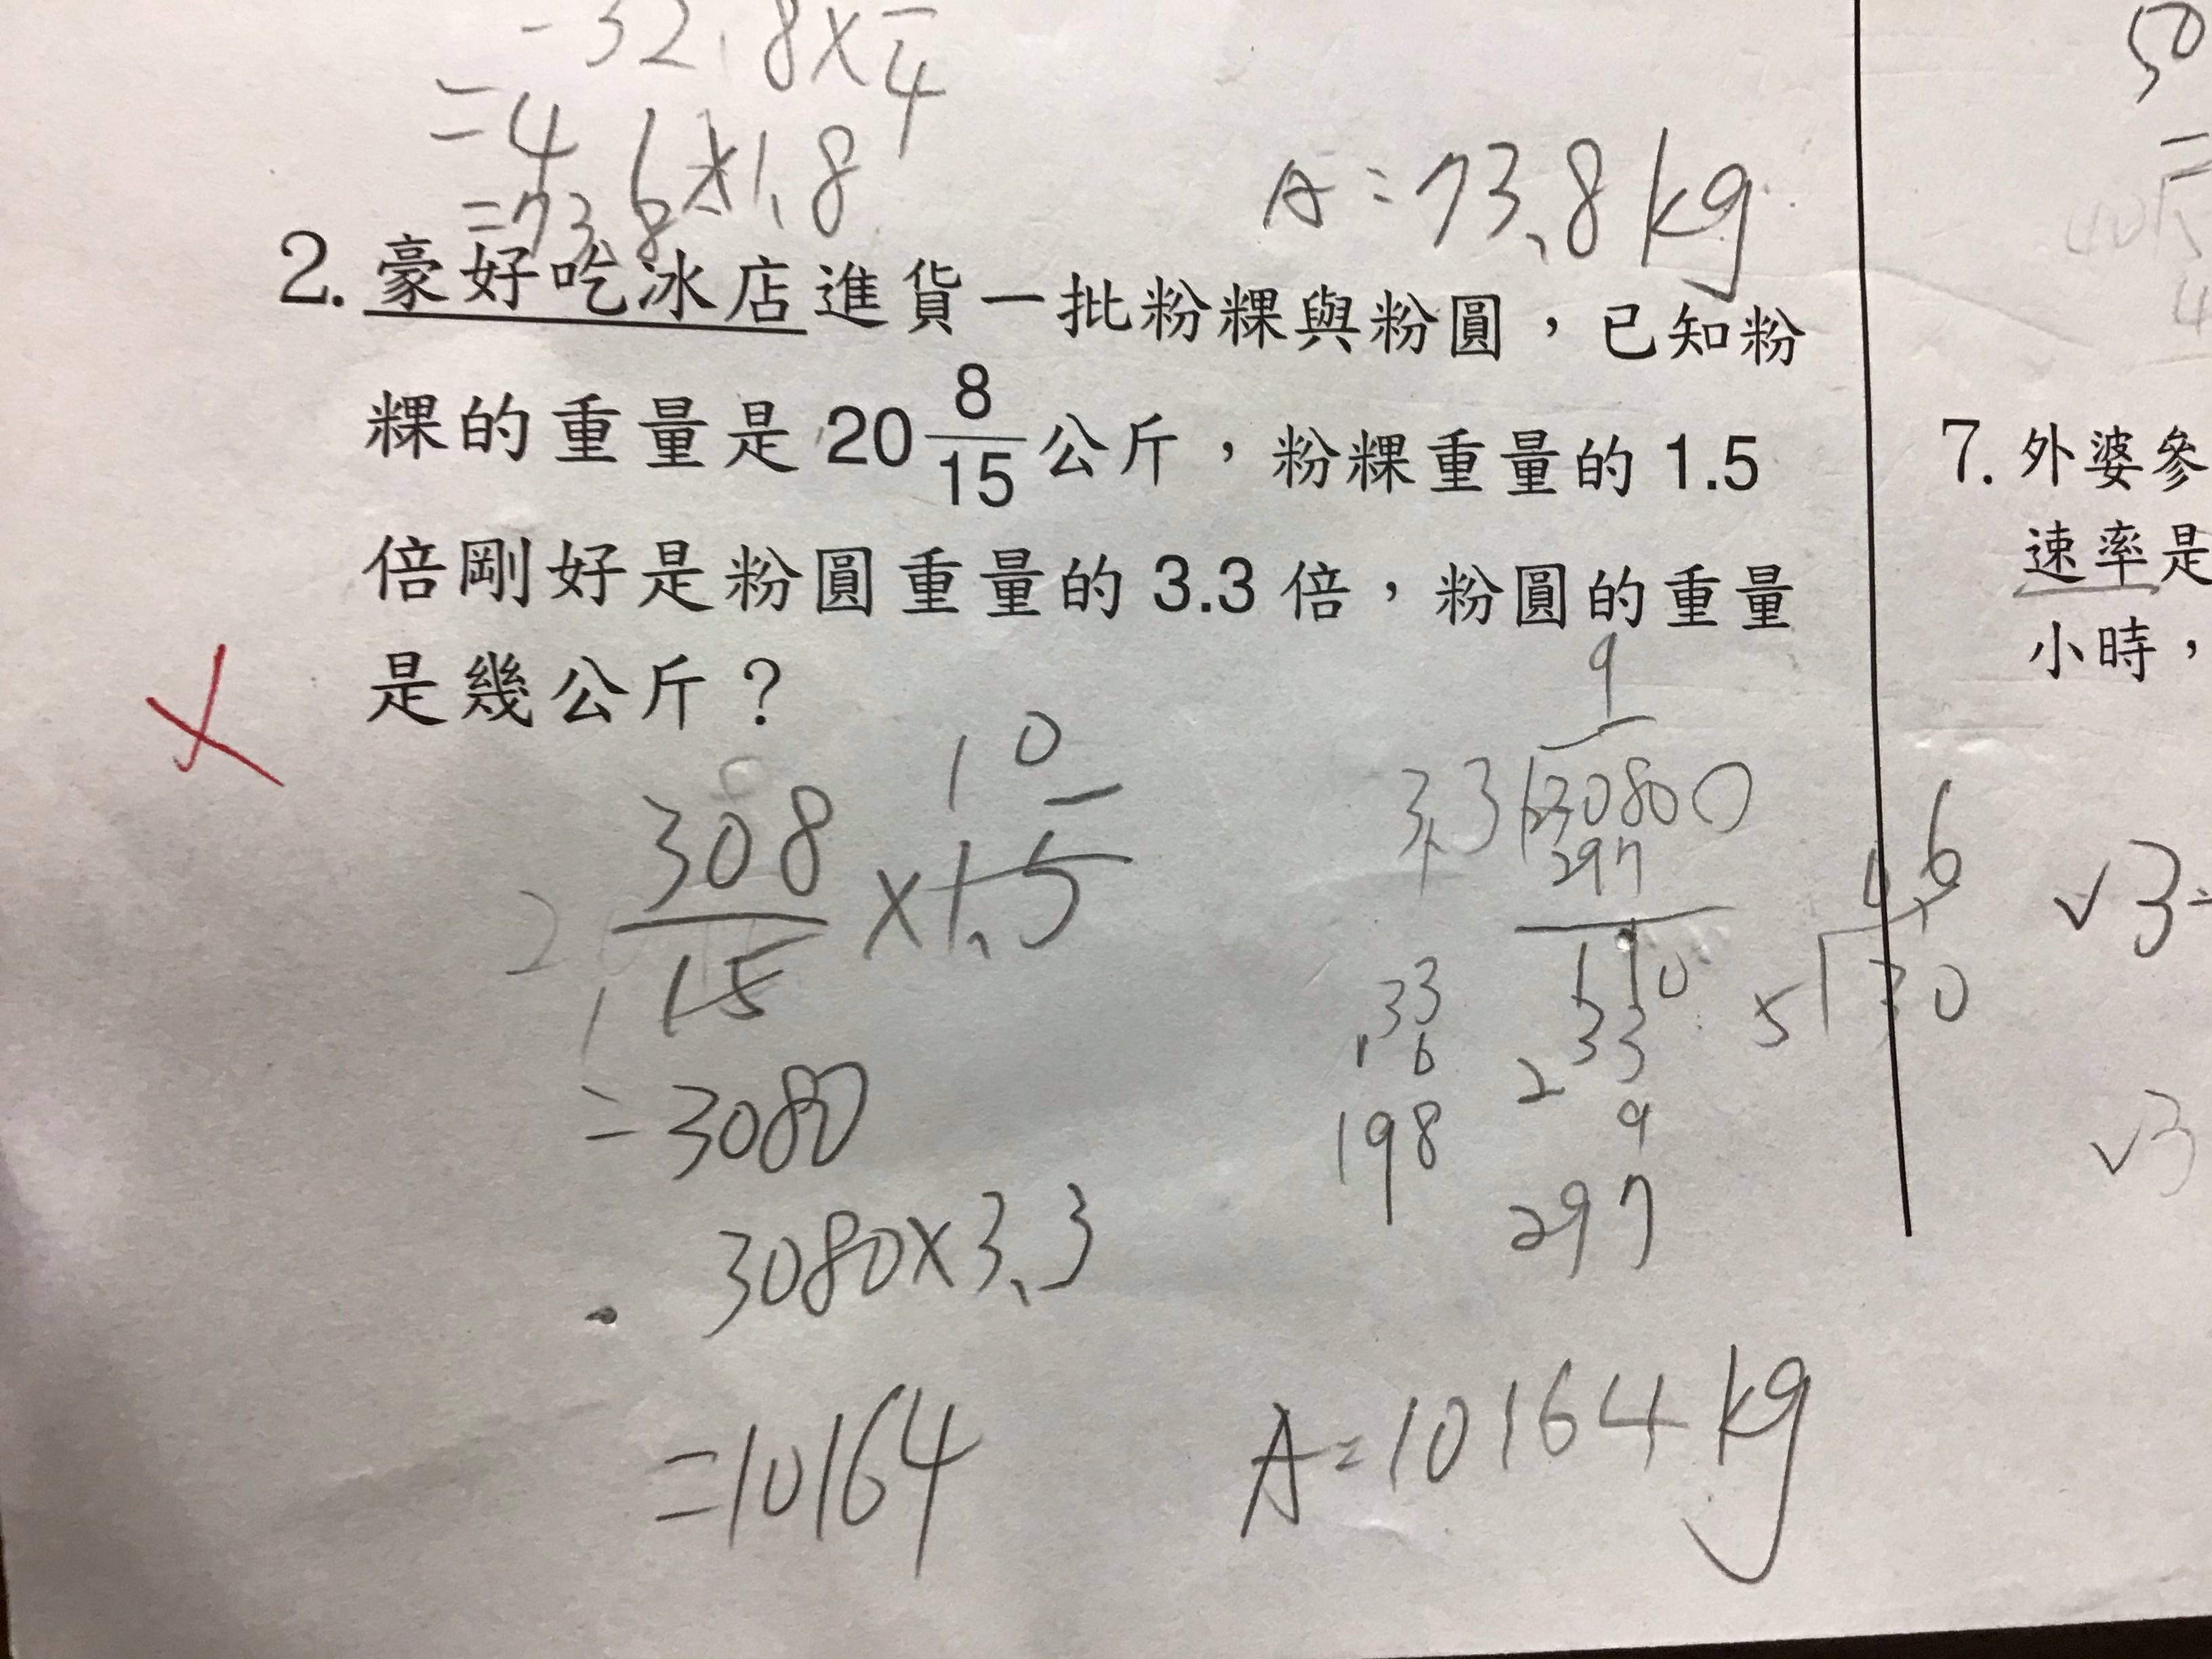 -32.8×
4
=4 6×1.8
=73.8
A=73.8kg
2. 豪好吃冰店進貨一批粉粿與粉圓，已知粉
粿的重量是20 8/15 公斤，粉粿重量的1.5
倍剛好是粉圓重量的3.3倍，粉圓的重量
是幾公斤？
10
308/15 ×1.5
1
=3080
3080×3.3
=10164
A=10164kg
9
3.3
297
110
33
6
198
33
2
9
297
6
5 30
50
=
4
7. 外婆參
速率是
小時，
√3
√3